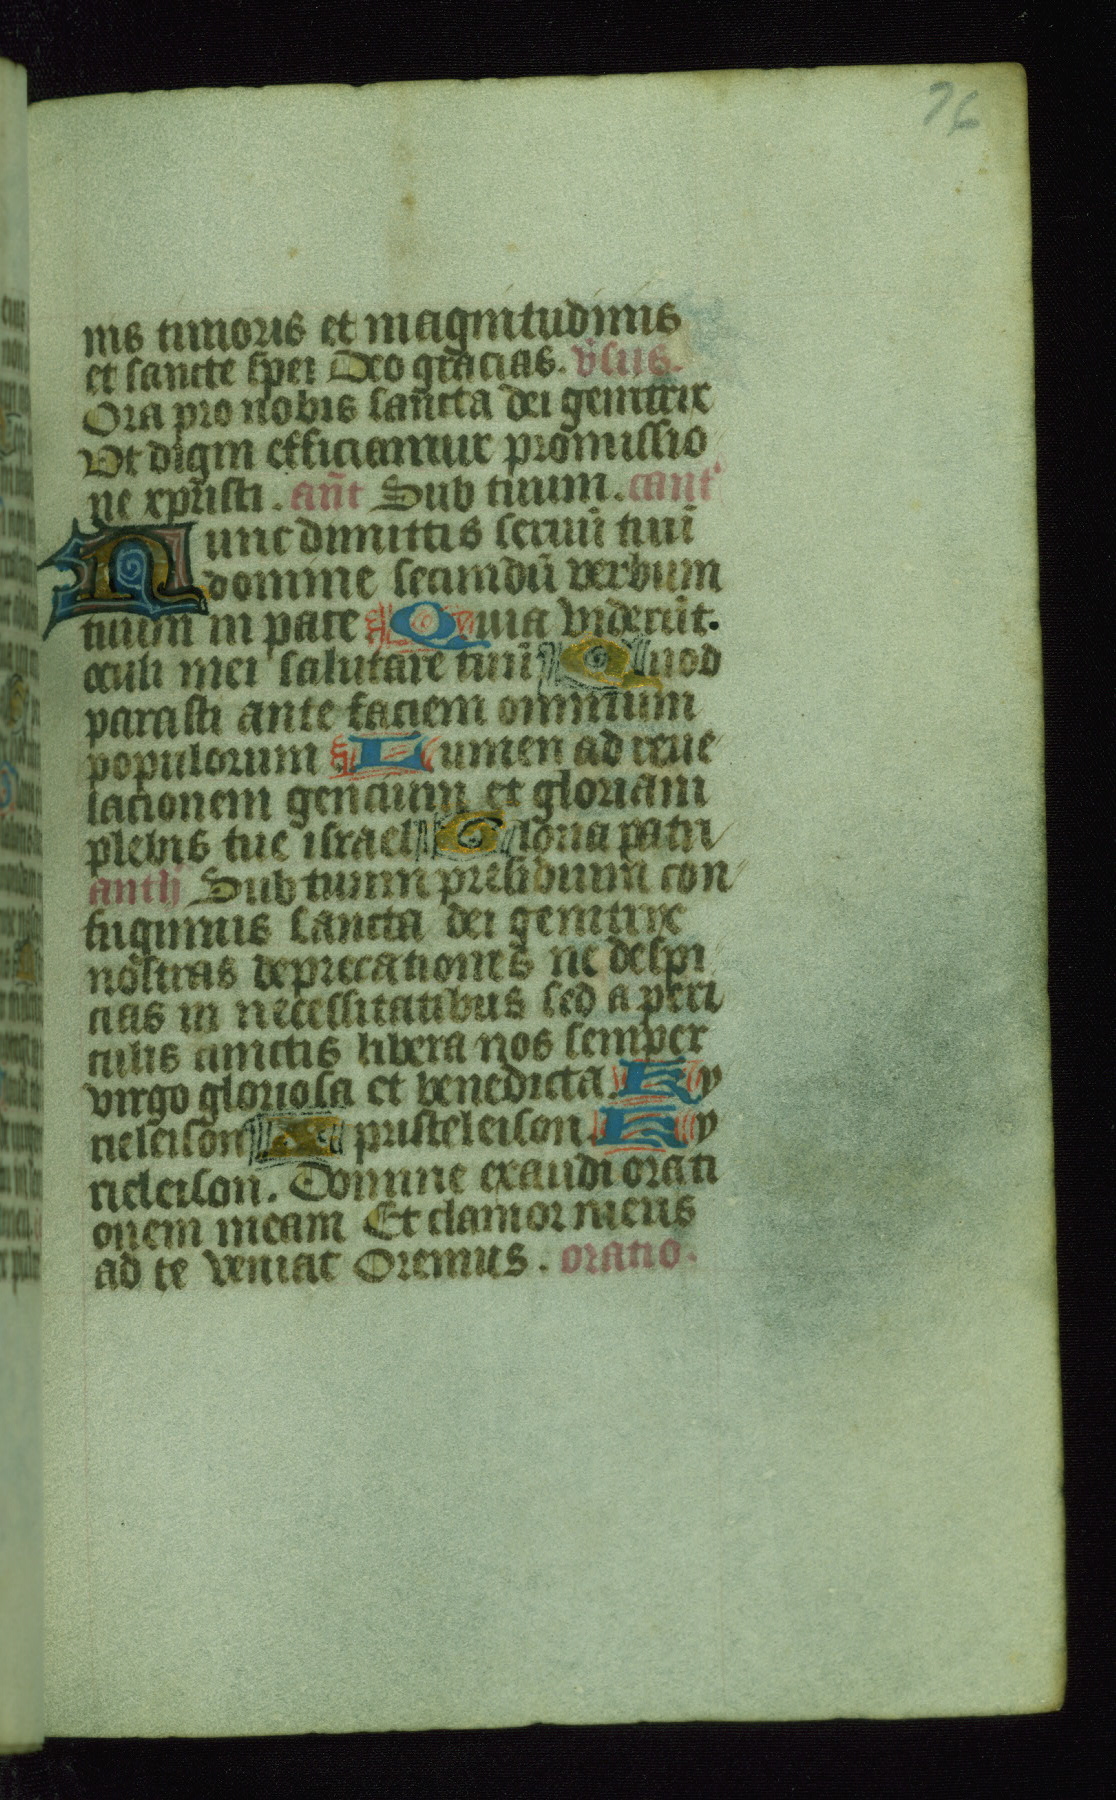 76
nis timoris et magnitudinis
et sancte spei Deo gracias. v̄sus.
Ora pro nobis sancta dei genitrix
Vt digni efficiamur promissio
ne xpristi. an̄t Sub tuum. cant
Nunc dimittis seruū tuū
domine secundū verbum
tuum in pace Quia viderūt.
oculi mei salutare tuū Quod
parasti ante faciem omnium
populorum Lumen ad reue
lacionem gencium et gloriam
plebis tue israel Gloria patri
anth Sub tuum presidium con
fugimus sancta dei genitrix
nostras deprecationes ne despi
cias in necessitatibus sed a peri
culis cunctis libera nos semper
virgo gloriosa et benedicta. Ky
rieleison Xpristeleison. Ky
rieleison. Domine exaudi orati
onem meam Et clamor meus
ad te veniat Oremus. oratio.